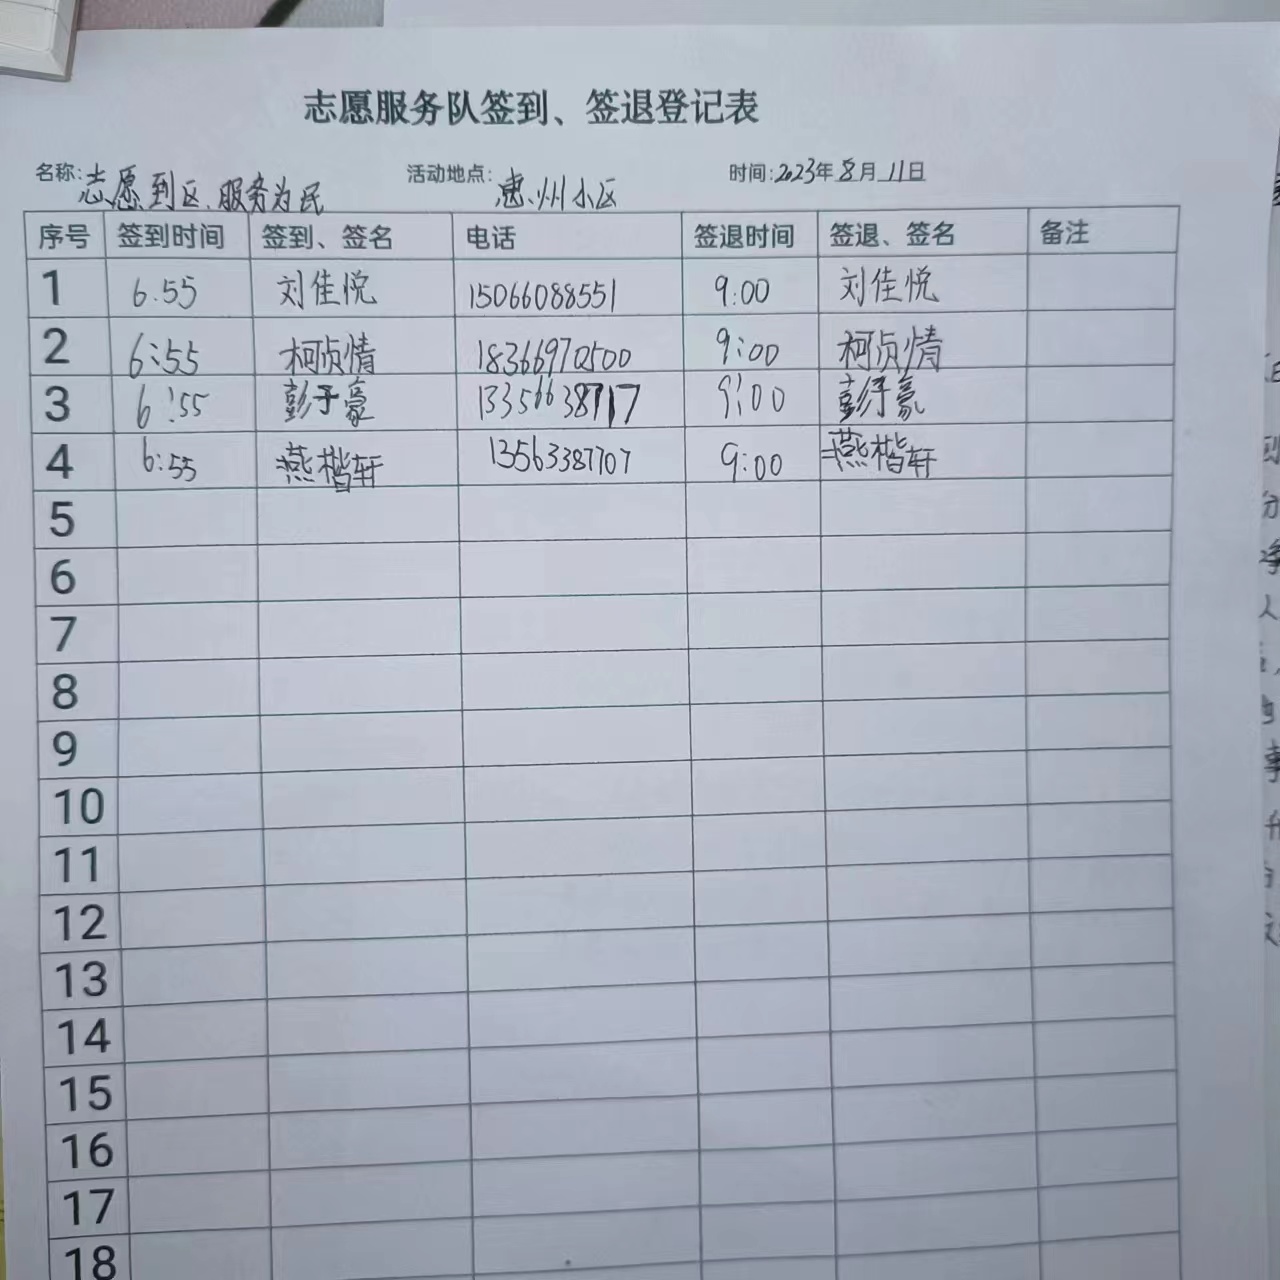 志愿服务队签到、签退登记表
名称:志愿到区.服务为民 活动地点:惠州小区 时间:2023年8月11日
序号 签到时间 签到、签名 电话 签退时间 签退、签名 备注
1 6.55 刘佳悦 15066088551 9:00 刘佳悦
2 6:55 柯贞情 18366970500 9:00 柯贞情
3 6:55 彭予豪 13356638717 9:00 彭予豪
4 6:55 燕楷轩 13563387707 9:00 燕楷轩
5
6
7
8
9
10
11
12
13
14
15
16
17
18